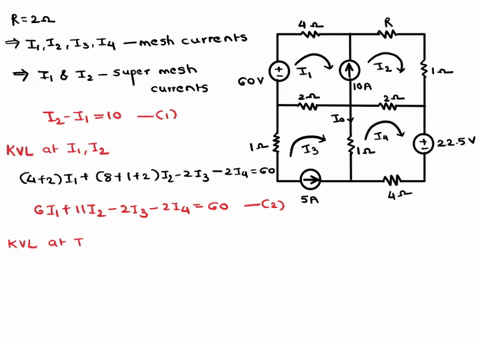 R=2Ω
⇒ I1, I2, I3, I4 – mesh currents
⇒ I1 & I2 – super mesh
currents
I2 - I1 = 10 —(1)
KVL at I1, I2
(4+2)I1 + (8+1+2)I2 - 2I3 - 2I4 = 60
6I1 + 11I2 - 2I3 - 2I4 = 60 —(2)
KVL at I
4Ω
R
60V
I1
10A
I2
1Ω
2Ω
2Ω
I0
1Ω
I3
1Ω
I4
22.5V
5A
4Ω